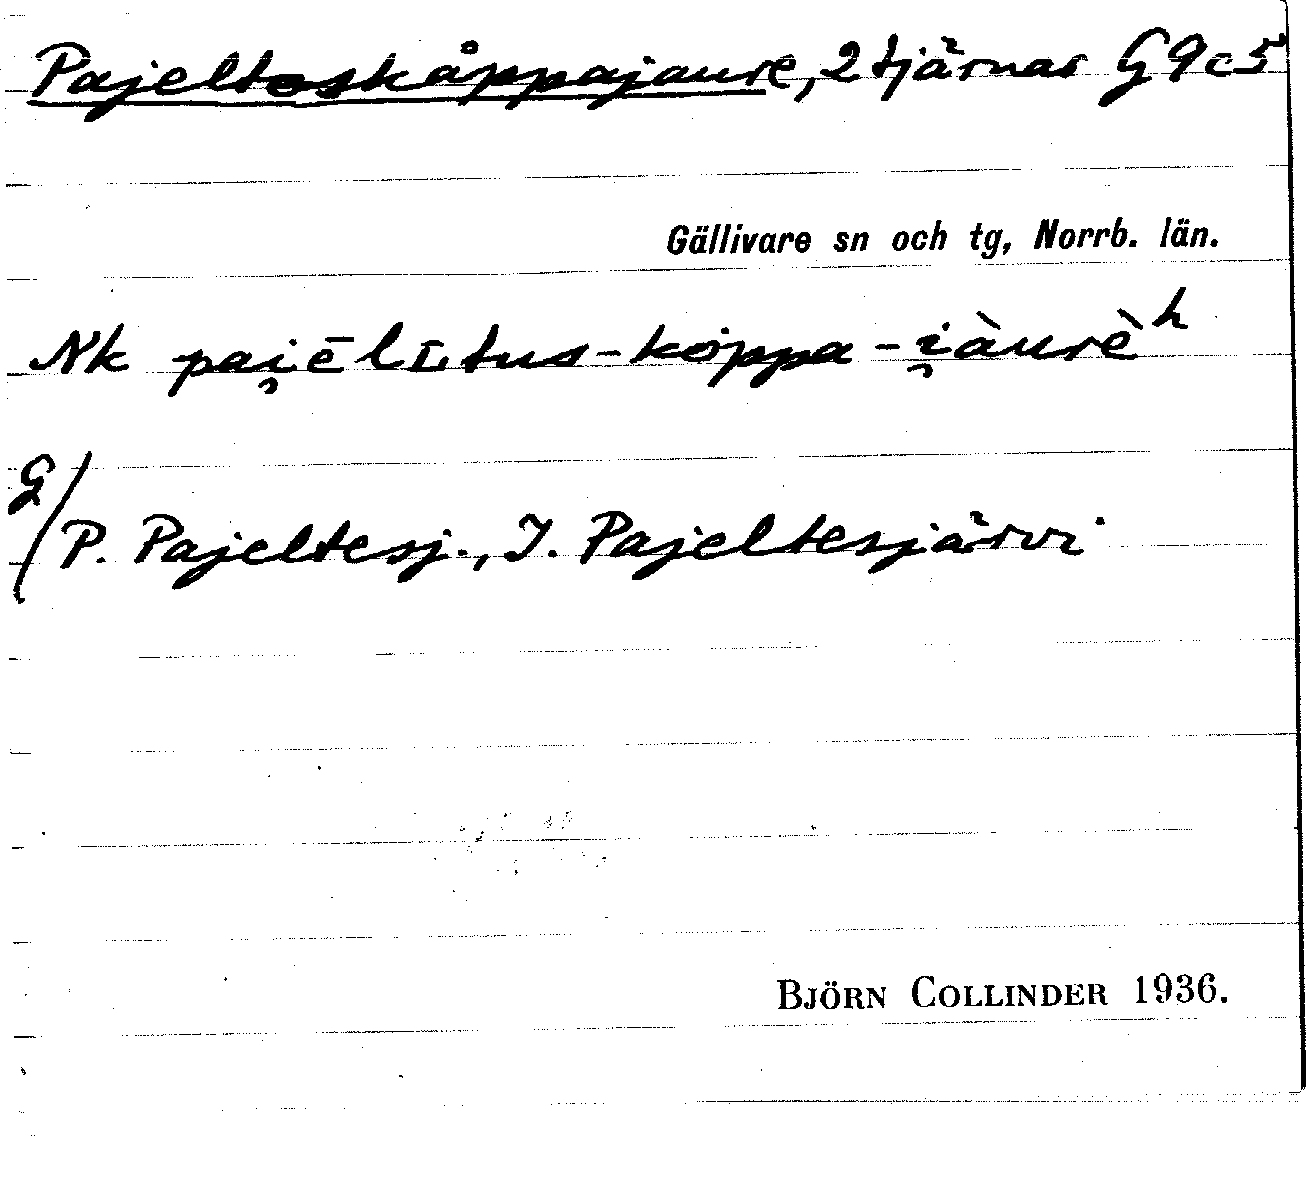 Pajeltoskåppajaure, 2 tjärnar G9c5
Gällivare sn och tg, Norrb. län.
Nk pai̯ēlītus-kåppa-i̯àurèʰ
G/P. Pajeltesj., I. Pajeltesjärvi
BJÖRN COLLINDER 1936.